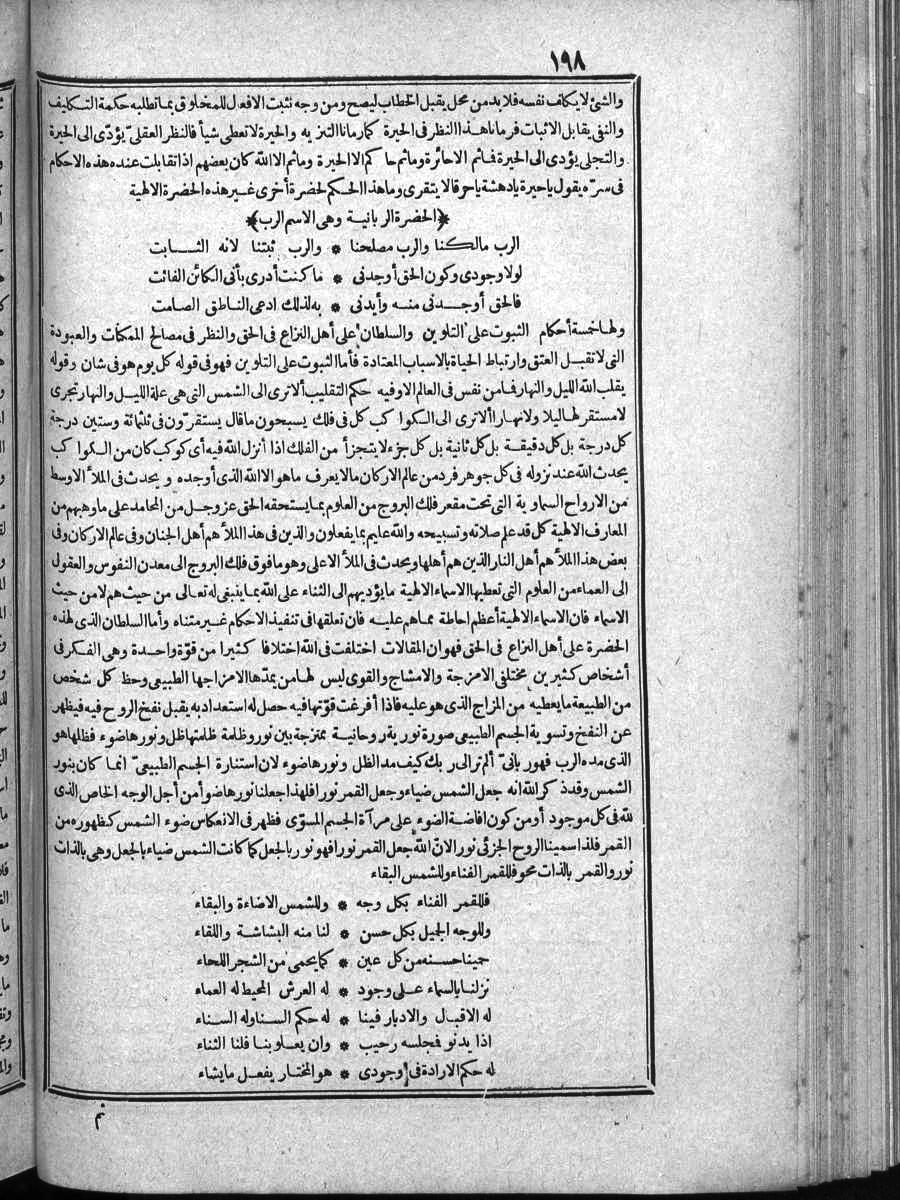 ١٩٨
والشئ لا يكلف نفسه فلا بد من محل يقبل الخطاب ليصح ومن وجه نثبت الافعال للمخلوق بما تطلبه حكمة التكليف
والنفي يقابل الاثبات فرمانا هذا النظر فى الحيرة كما رمانا التنزيه والحيرة لا تعطى شيأ فالنظر العقلىّ يؤدّى الى الحيرة
والتجلى يؤدى الى الحيرة فاثم الاحائرة وماثم حاكم الا الحيرة وماثم الا الله كان بعضهم اذا تقابلت عنده هذه الاحكام
فى سرّه يقول يا حيرة يا دهشة يا حرقا لا يتقرى وما هذا الحكم لحضرة أخرى غير هذه الحضرة الالهية
﴿الحضرة الربانية وهى الاسم الرب﴾
الرب مالكنا والرب مصلحنا * والرب ثبتنا لانه الثابت
لولا وجودى وكون الحق أوجدنى * ما كنت أدرى بأنى الكائن الفائت
فالحق أوجدنى منه وأيدنى * به لذلك ادعى الناطق الصامت
ولها خمسة أحكام الثبوت على التلوين والسلطان على أهل النزاع فى الحق والنظر فى مصالح الممكنات والعبودة
التى لا تقبل العتق وارتباط الحياة بالاسباب المعتادة فأما الثبوت على التلوين فهو فى قوله كل يوم هو فى شان وقوله
يقلب الله الليل والنهار فما من نفس فى العالم الا وفيه حكم التقليب ألا ترى الى الشمس التى هى علة الليل والنهار تجرى
لا مستقر لها ليلا ولا نهارا ألا ترى الى الكواكب كل فى فلك يسبحون ما قال يستقرّون فى ثلثمائة وستين درجة
كل درجة بل كل دقيقة بل كل ثانية بل كل جزء لا يتجزأ من الفلك اذا أنزل الله فيه أى كوكب كان من الكواكب
يحدث الله عند نزوله فى كل جوهر فرد من عالم الاركان ما لا يعرف ما هو الا الله الذى أوجده ويحدث فى الملأ الاوسط
من الارواح السماوية التى تحت مقعر فلك البروج من العلوم بما يستحقه الحق عز وجل من المحامد على ما وهبهم من
المعارف الالهية كل قد علم صلاته وتسبيحه والله عليم بما يفعلون والذين فى هذا الملأ هم أهل الجنان وفى عالم الاركان وفى
بعض هذا الملأ هم أهل النار الذين هم أهلها ويحدث فى الملأ الاعلى وهو ما فوق فلك البروج الى معدن النفوس والعقول
الى العماء من العلوم التى تعطيها الاسماء الالهية ما يؤديهم الى الثناء على الله بما ينبغى له تعالى من حيث هم لا من حيث
الاسماء فان الاسماء الالهية أعظم احاطة مما هم عليه فان تعلقها فى تنفيذ الاحكام غير متناه وأما السلطان الذى لهذه
الحضرة على أهل النزاع فى الحق فهو ان المقالات اختلفت فى الله اختلافا كثيرا من قوّة واحدة وهى الفكر فى
أشخاص كثيرين مختلفى الامزجة والامشاج والقوى ليس لها من يمدّها الا مزاجها الطبيعى وحظ كل شخص
من الطبيعة ما يعطيه من المزاج الذى هو عليه فاذا أفرغت قوّتها فيه حصل له استعداد به يقبل نفخ الروح فيه فيظهر
عن النفخ وتسوية الجسم الطبيعى صورة نورية روحانية ممتزجة بين نور وظلمة ظلمتها ظل ونورها ضوء فظلها هو
الذى مده الرب فهو ربانىّ ألم تر الى ربك كيف مد الظل ونورها ضوء لان استنارة الجسم الطبيعىّ انما كان بنور
الشمس وقد ذكر الله انه جعل الشمس ضياء وجعل القمر نورا فلهذا جعلنا نورها ضوأ من أجل الوجه الخاص الذى
لله فى كل موجود أو من كون افاضة الضوء على مرآة الجسم المسوّى فظهر فى الانعكاس ضوء الشمس كظهوره من
القمر فلذا سمينا الروح الجزئى نورا لانّ الله جعل القمر نورا فهو نور بالجعل كما كانت الشمس ضياء بالجعل وهى بالذات
نور والقمر بالذات محو فللقمر الفناء وللشمس البقاء
فللقمر الفناء بكل وجه * وللشمس الاضاءة والبقاء
وللوجه الجميل بكل حسن * لنا منه البشاشة واللقاء
حمينا حسنه من كل عين * كما يحمى من الشجر اللحاء
نزلنا بالسماء على وجود * له العرش المحيط له العماء
له الاقبال والادبار فينا * له حكم السنا وله السناء
اذا يدنو فمجلسه رحيب * وان يعلو بنا فلنا الثناء
له حكم الارادة فى وجودى * هو المختار يفعل ما يشاء